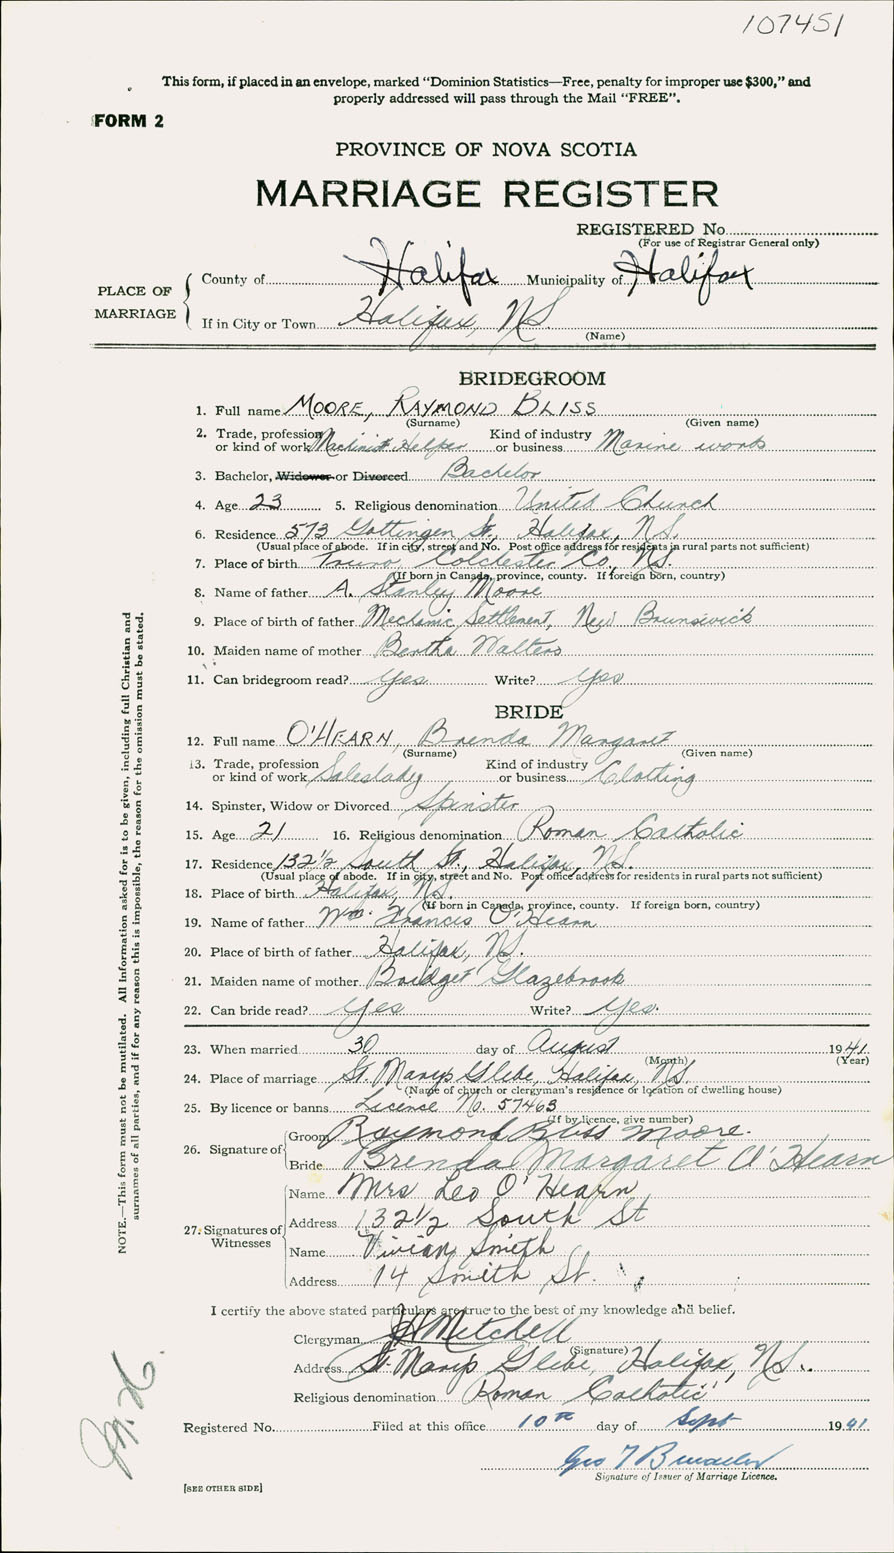 107451
This form, if placed in an envelope, marked “Dominion Statistics—Free, penalty for improper use $300,” and
properly addressed will pass through the Mail “FREE”.
FORM 2
PROVINCE OF NOVA SCOTIA
MARRIAGE REGISTER
REGISTERED No
(For use of Registrar General only)
PLACE OF MARRIAGE
County of Halifax Municipality of Halifax
If in City or Town Halifax, NS
(Name)
BRIDEGROOM
1. Full name MOORE, RAYMOND BLISS
(Surname) (Given name)
2. Trade, profession or kind of work Machinist Helper Kind of industry or business Marine works
3. Bachelor, Widower or Divorced Bachelor
4. Age 23 5. Religious denomination United Church
6. Residence 573 Gottingen St, Halifax, NS.
(Usual place of abode. If in city, street and No. Post office address for residents in rural parts not sufficient)
7. Place of birth Truro Colchester Co, NS.
(If born in Canada, province, county. If foreign born, country)
8. Name of father A. Stanley Moore
9. Place of birth of father Mechanic Settlement, New Brunswick
10. Maiden name of mother Bertha Walters
11. Can bridegroom read? yes Write? yes
BRIDE
12. Full name O'HEARN, Brenda Margaret
(Surname) (Given name)
13. Trade, profession or kind of work Saleslady Kind of industry or business Clothing
14. Spinster, Widow or Divorced Spinster
15. Age 21 16. Religious denomination Roman Catholic
17. Residence 132½ South St., Halifax, NS.
(Usual place of abode. If in city, street and No. Post office address for residents in rural parts not sufficient)
18. Place of birth Halifax, NS.
(If born in Canada, province, county. If foreign born, country)
19. Name of father Wm. Francis O'Hearn
20. Place of birth of father Halifax, NS.
21. Maiden name of mother Bridget Glazebrook
22. Can bride read? yes Write? yes.
23. When married 30 day of August 1941
(Month) (Year)
24. Place of marriage St. Marys Glebe, Halifax, NS.
(Name of church or clergyman's residence or location of dwelling house)
25. By licence or banns License No. 57463
(If by licence, give number)
26. Signature of
Groom Raymond Bliss Moore.
Bride Brenda Margaret O'Hearn
27. Signatures of Witnesses
Name Mrs Leo O'Hearn
Address 132½ South St
Name Vivian Smith
Address 14 Smith St.
I certify the above stated particulars are true to the best of my knowledge and belief.
Clergyman Mitchell
(Signature)
Address St. Marys Glebe, Halifax, NS.
Religious denomination Roman Catholic
Registered No. Filed at this office 10th day of Sept 1941
Geo
Signature of Issuer of Marriage Licence.
[SEE OTHER SIDE]
NOTE.—This form must not be mutilated. All information asked for is to be given, including full Christian and
surnames of all parties, and if for any reason this is impossible, the reason for the omission must be stated.